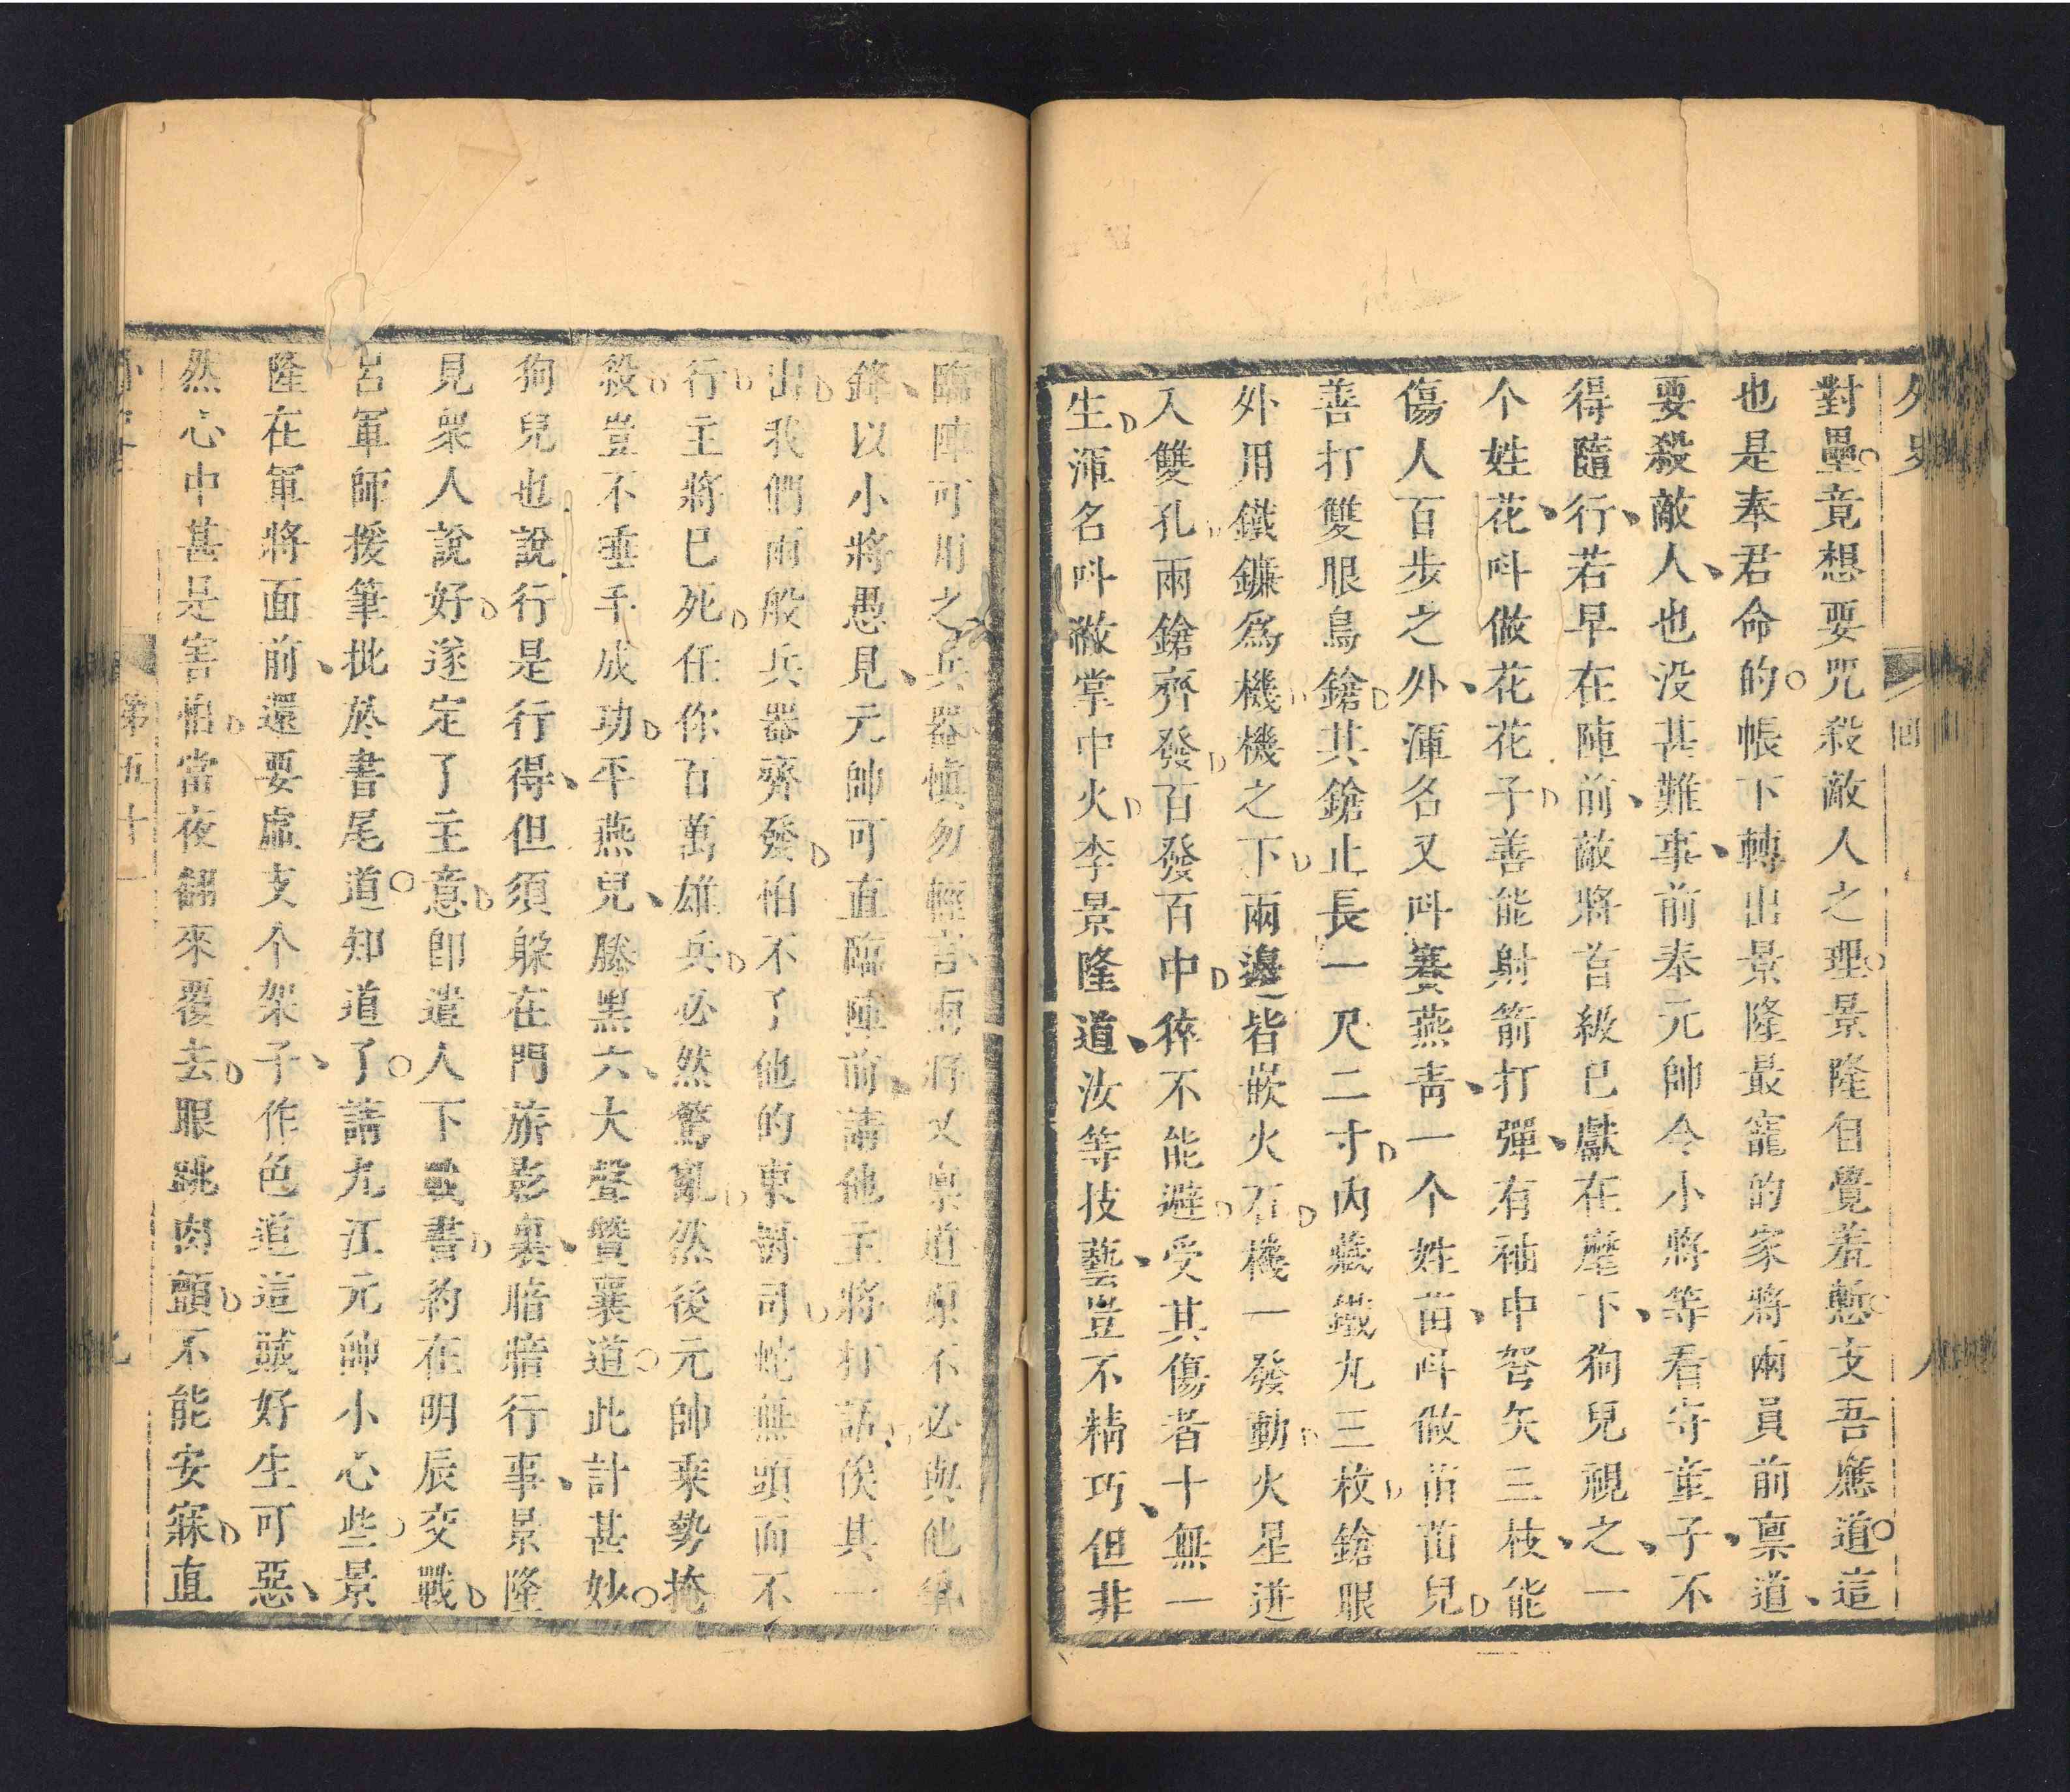 外史
回
八
對壘竟想要咒殺敵人之理景隆自覺羞慙支吾應道這
也是奉君命的帳下轉出景隆最寵的家將兩員前禀道
要殺敵人也没甚難事前奉元帥令小將等看守童子不
得隨行若早在陣前敵將首級已獻在麾下狗兒視之一
个姓花呌做花花子善能射箭打彈有袖中弩矢三枝能
傷人百步之外渾名又呌賽燕青一个姓苗呌做苗苗兒
善打雙眼鳥鎗其鎗止長一尺二寸內藏鐵丸三枚鎗眼
外用鐵鐮爲機機之下兩邊皆嵌火石機一發動火星迸
入雙孔兩鎗齊發百發百中猝不能避受其傷者十無一
生渾名呌做掌中火李景隆道汝等技藝豈不精巧但非
臨陣可用之兵器愼勿輕言兩將又禀道原不必與他爭
鋒以小將愚見元帥可直臨陣前請他主將打話俟其一
出我們兩般兵器齊發怕不了他的東厨司蛇無頭而不
行主將已死任你百萬雄兵必然驚亂然後元帥乘勢掩
殺豈不垂手成功平燕兒滕黑六大聲贊襄道此計甚妙
狗兒也說行是行得但須躱在門旂影裏暗暗行事景隆
見衆人說好遂定了主意卽遣人下戰書約在明辰交戰
呂軍師援筆批於書尾道知道了請九江元帥小心些景
隆在軍將面前還要虛支个架子作色道這賊好生可惡
然心中甚是害怕當夜翻來覆去眼跳肉顫不能安寐直
第五十一
九